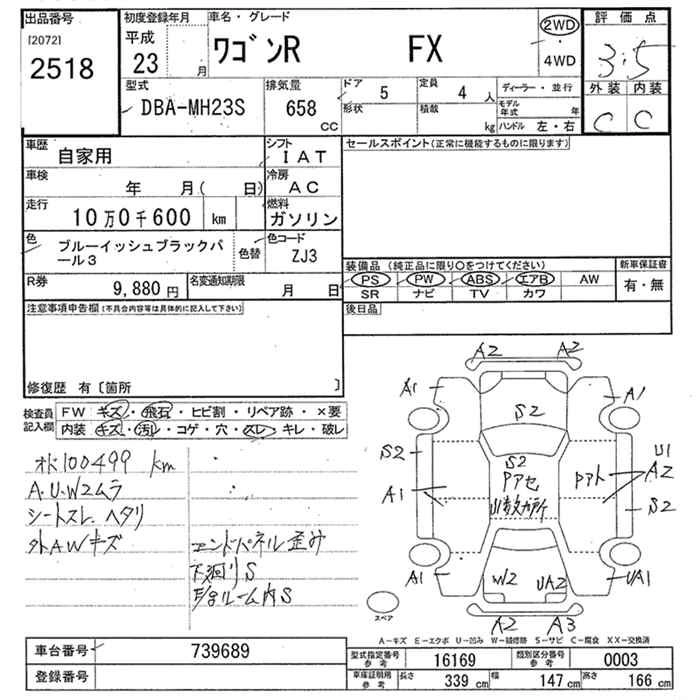 出品番号
[2072]
2518
初度登録年月
平成
23 月
車名・グレード
ワゴンR FX
2WD
4WD
評価点
3.5
外装 内装
C C
型式
DBA-MH23S
排気量
658
CC
ドア 5
形状
定員 4 人
積載 kg
ディーラー・並行
モデル年式 年
ハンドル 左・右
車歴
自家用
シフト
IAT
車検
年 月( 日)
冷房
AC
走行
10万0千600 km
燃料
ガソリン
色
ブルーイッシュブラックパール3
色替
色コード
ZJ3
R券
9,880 円
名変通知期限
月 日
セールスポイント(正常に機能するものに限ります)
装備品 (純正品に限り○をつけてください)
PS PW ABS エアB AW
SR ナビ TV カワ
新車保証書
有・無
後日品
注意事項申告欄(不具合内容等は具体的に記入して下さい)
修復歴 有〔箇所 〕
検査員
記入欄
FW キズ・飛石・ヒビ割・リペア跡・×要
内装 キズ・汚・コゲ・穴・スレ・キレ・破レ
オド100499 km
A.U.W2ムラ
シートスレ.ヘタリ
外AWキズ
エンドパネル歪み
下廻りS
A2 A2
A1 A1
S2
S2
S2
Pアセ
U1
A2
Pアト
A1
S2
A1
W2 UA2
UA1
A2 A3
スペア
A-キズ E-エクボ U-凹み W-補修跡 S-サビ C-腐食 XX-交換済
車台番号 739689
登録番号
型式指定番号
参考
16169
類別区分番号
参考
0003
車庫証明用
参考
長さ 339 cm 幅 147 cm 高さ 166 cm